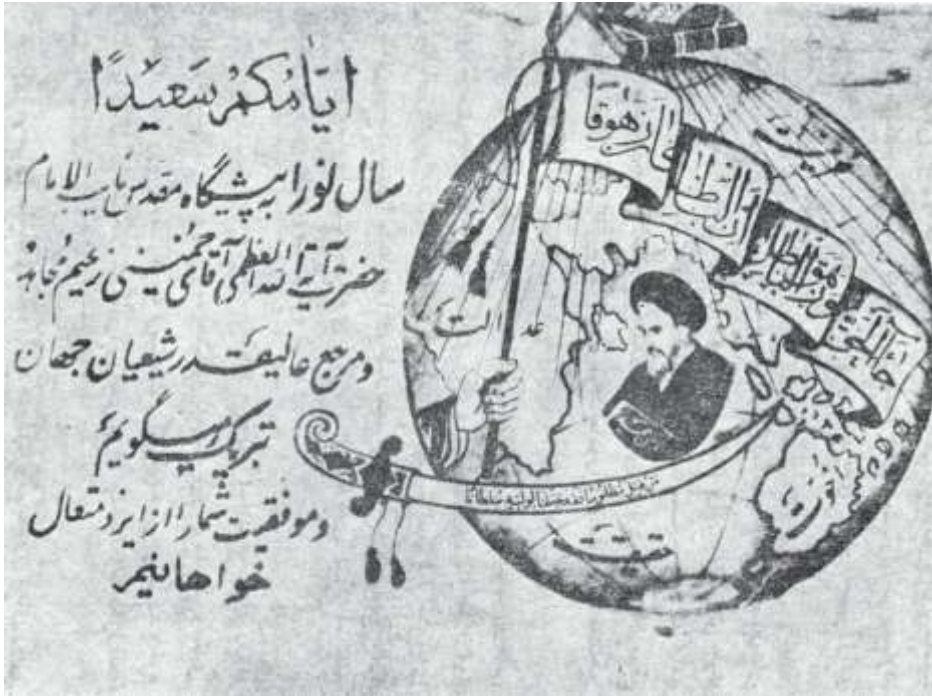 ایامکم سعیدا
سال نو را به پیشگاه مقدس نایب الامام
حضرت آیة الله العظمی آقای خمینی زعیم مجاهد
و مرجع عالیقدر شیعیان جهان
تبریک میگوئیم
و موفقیت شما را از ایزد متعال
خواهانیم
جاء الحق
وزهق الباطل
ان الباطل
کان زهوقا
من قتل مظلوما فقد جعلنا لولیه سلطانا
حقیقت